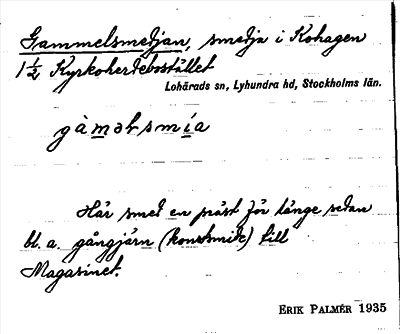 Gammelsmedjan, smedja i Kohagen
1 1/2 Kyrkoherdebostället
Lohärads sn, Lyhundra hd, Stockholms län.
gàməlsmía
Här smed en präst för länge sedan
bl. a. gångjärn (konstsmide) till
Magasinet.
ERIK PALMÉR 1935